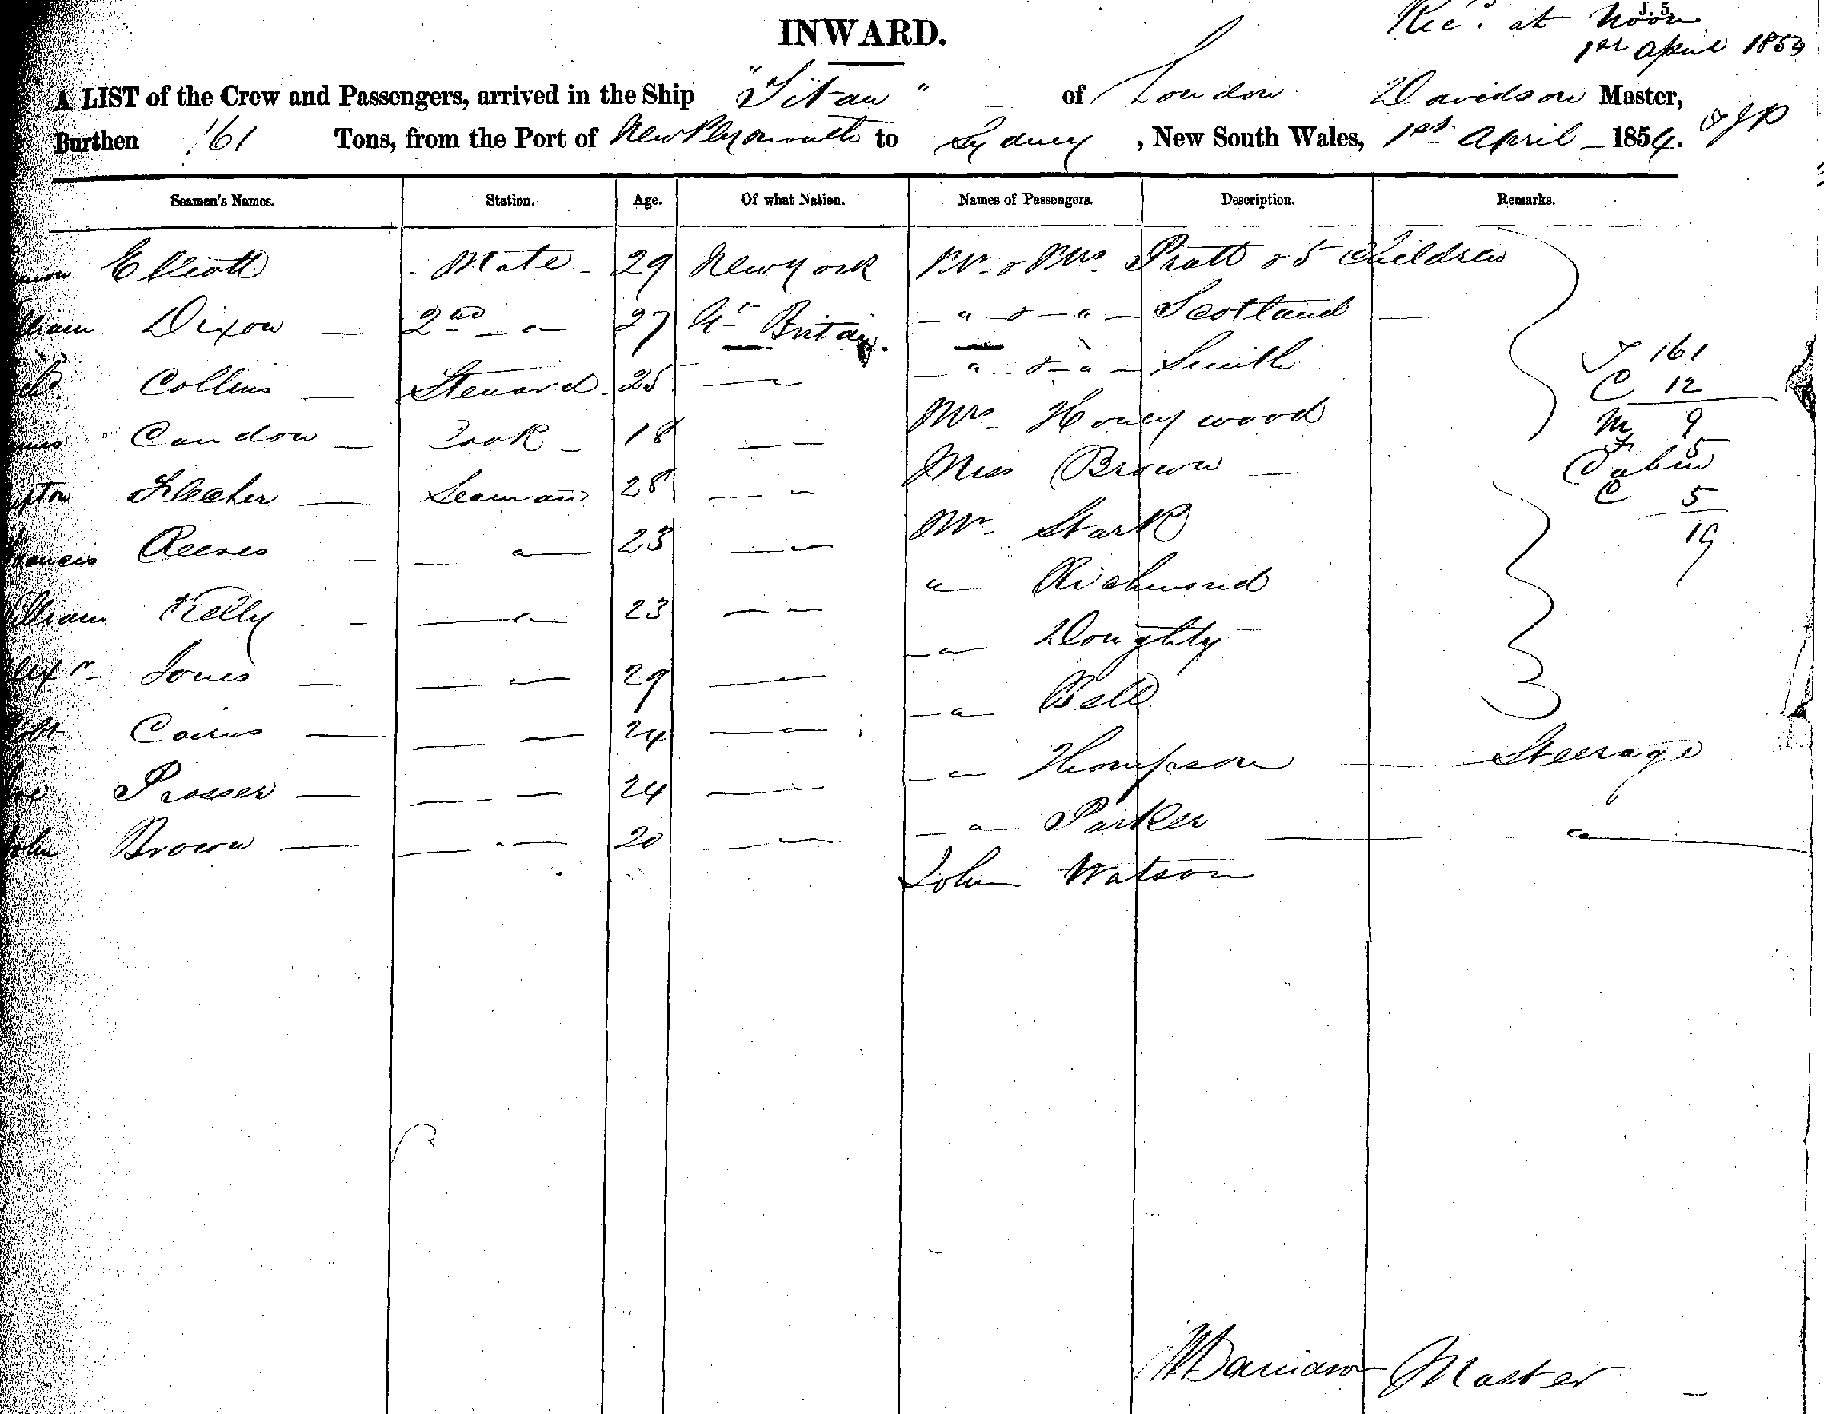 J. 5.
INWARD.
Rec.d at Noon
1st April 1854
A LIST of the Crew and Passengers, arrived in the Ship "Titan" of London Davidson Master,
Burthen 161 Tons, from the Port of New Plymouth to Sydney, New South Wales, 1st April 1854.
Seamen's Names. Station. Age. Of what Nation. Names of Passengers. Description. Remarks.
Elliott Mate 29 New York Mr & Mrs Pratt & 5 Children
Dixon 2nd " 27 Gt Britain " & " Scotland
Collins Steward 25 " " & " Smith
Condon Cook 18 " Mrs Honeywood
Seaman 28 " Miss Brown
Reeves " 23 " Mr Stark
Kelly " 23 " " Richmond
Alexr Jones " 29 " " Doughty
Cairns " 24 " " Bell
Prosser " 24 " " Thompson Steerage
John Brown " 20 " " Parker "
John Watson
T 161
C 12
M 9
F 5
Cabin
C 5
19
Master